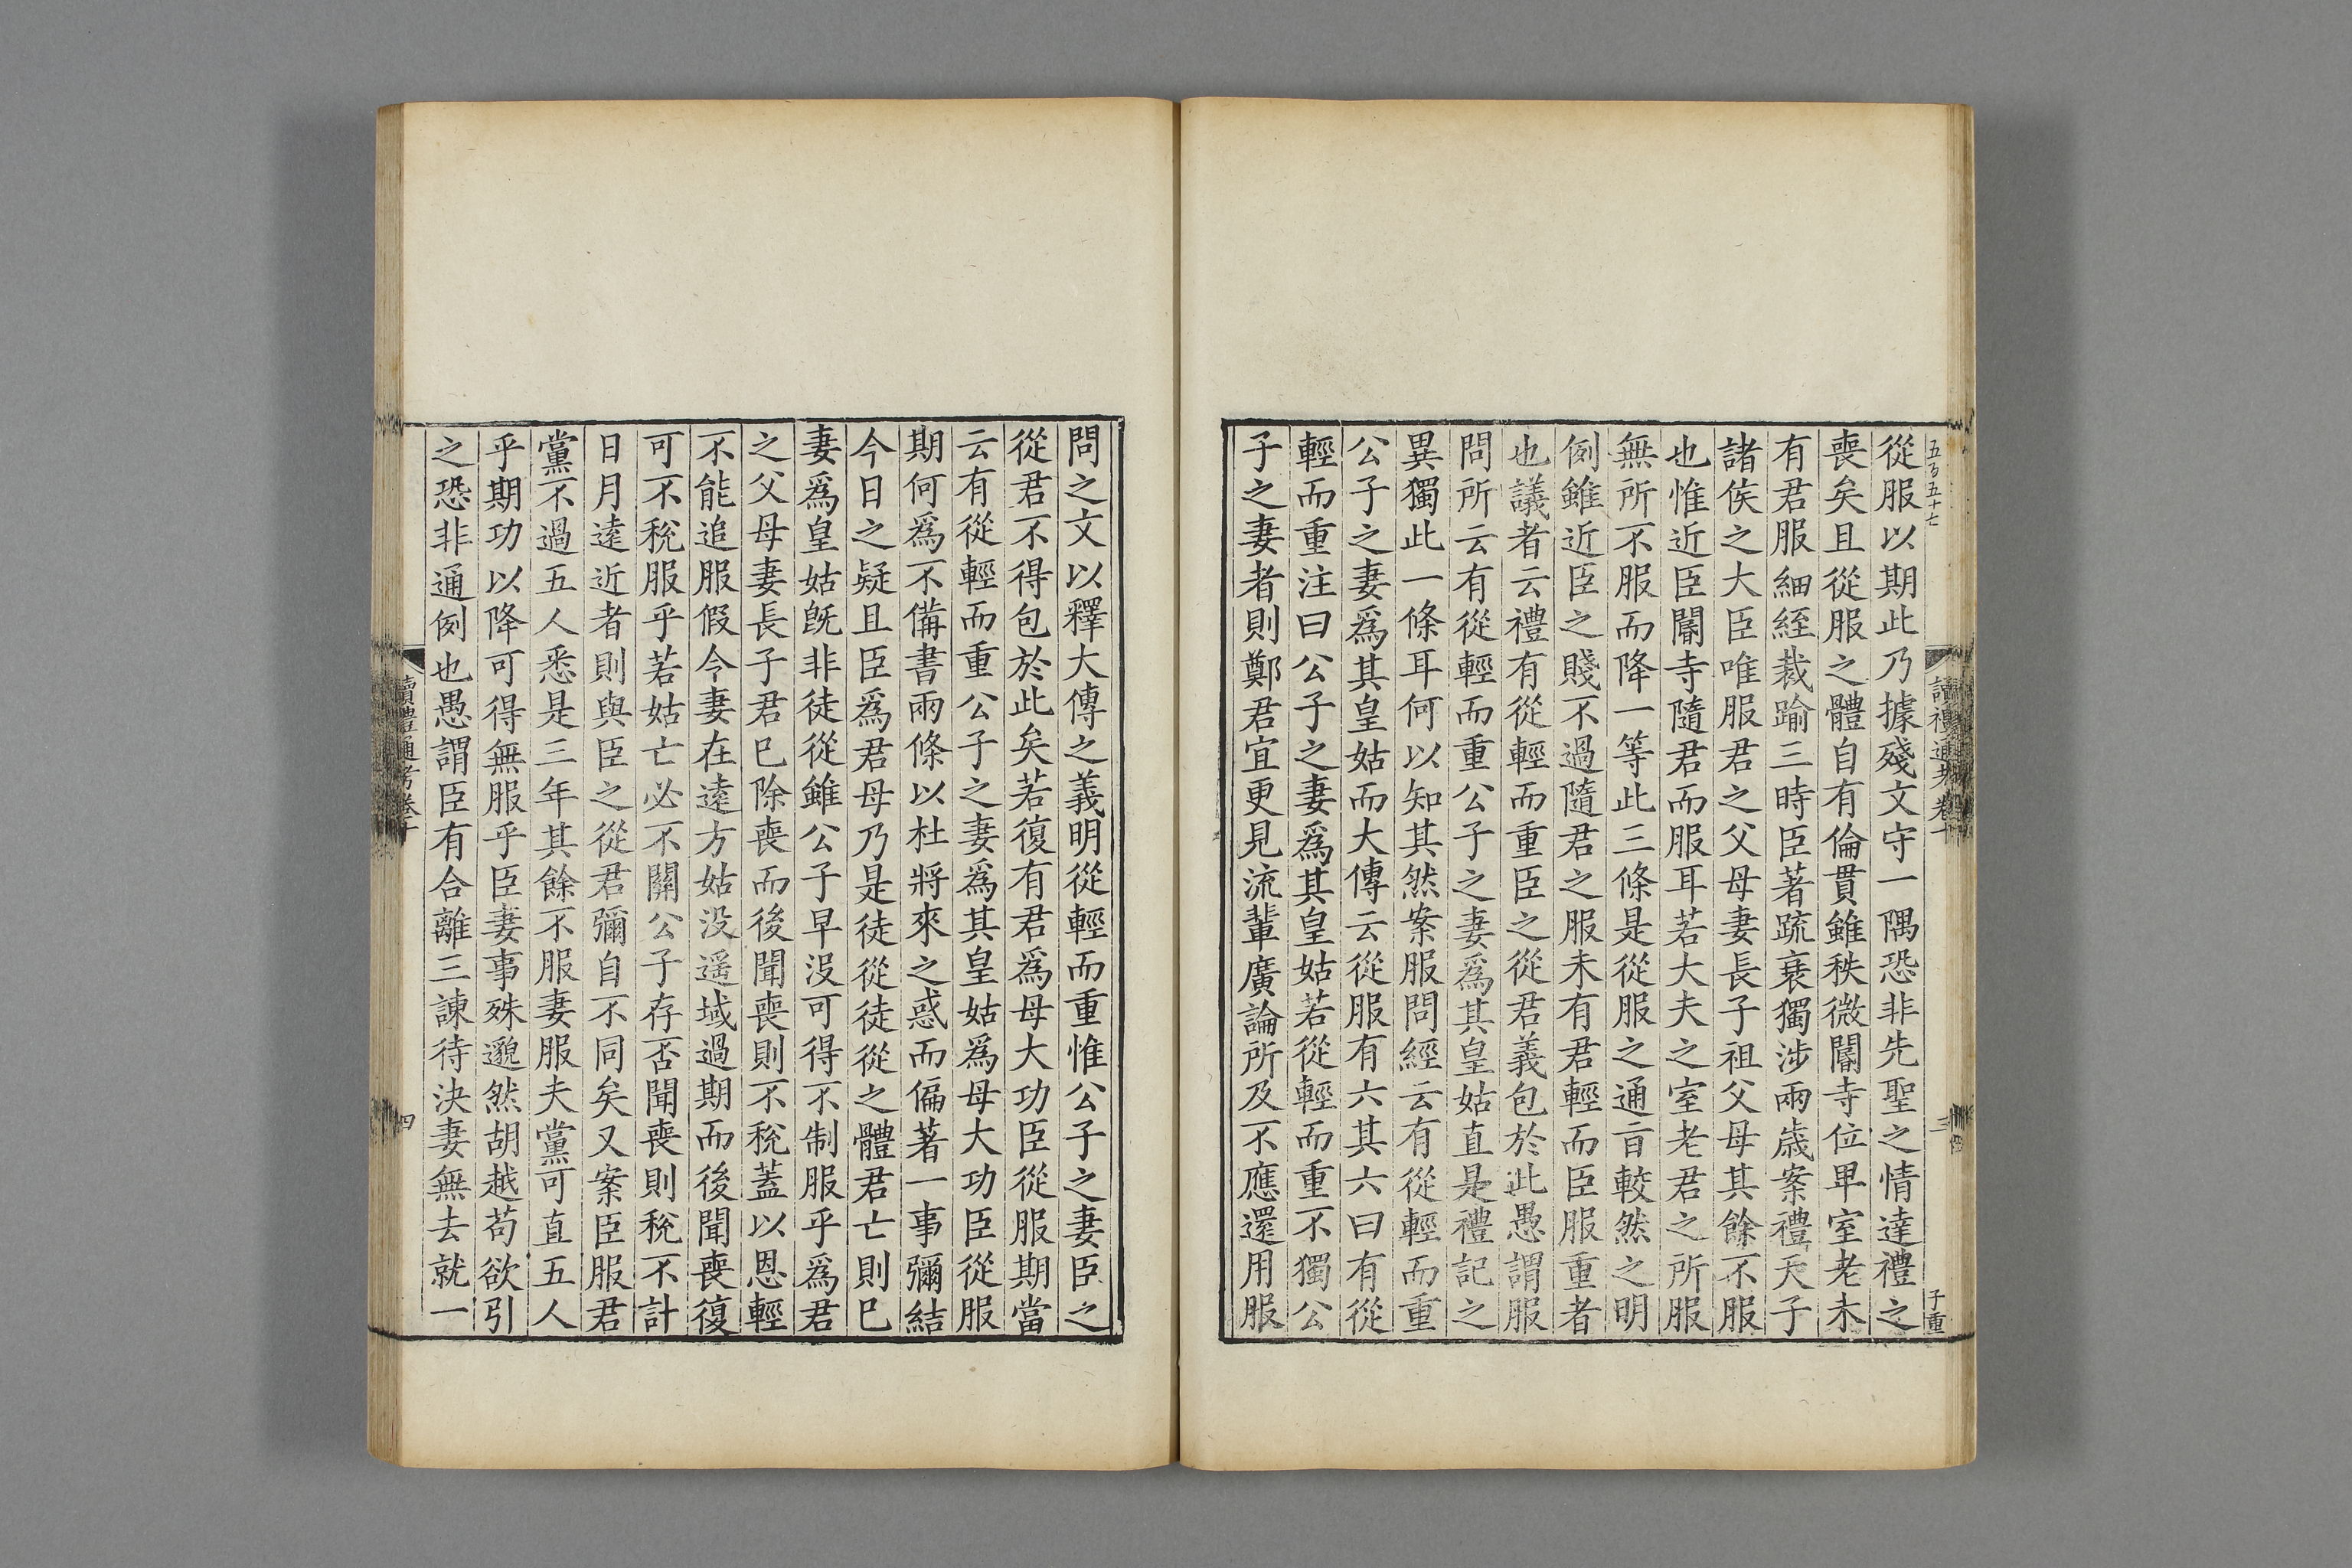 五百五十七
讀禮通考卷十
三
子重
從服以期此乃據殘文守一隅恐非先聖之情達禮之
喪矣且從服之體自有倫貫雖秩微閽寺位卑室老未
有君服細絰裁踰三時臣著疏衰獨涉兩歲案禮天子
諸侯之大臣唯服君之父母妻長子祖父母其餘不服
也惟近臣閽寺隨君而服耳若大夫之室老君之所服
無所不服而降一等此三條是從服之通旨較然之明
例雖近臣之賤不過隨君之服未有君輕而臣服重者
也議者云禮有從輕而重臣之從君義包於此愚謂服
問所云有從輕而重公子之妻爲其皇姑直是禮記之
異獨此一條耳何以知其然案服問經云有從輕而重
公子之妻爲其皇姑而大傳云從服有六其六曰有從
輕而重注曰公子之妻爲其皇姑若從輕而重不獨公
子之妻者則鄭君宜更見流輩廣論所及不應還用服
問之文以釋大傳之義明從輕而重惟公子之妻臣之
從君不得包於此矣若復有君爲母大功臣從服期當
云有從輕而重公子之妻爲其皇姑爲母大功臣從服
期何爲不備書兩條以杜將來之惑而偏著一事彌結
今日之疑且臣爲君母乃是徒從徒從之體君亡則已
妻爲皇姑旣非徒從雖公子早沒可得不制服乎爲君
之父母妻長子君已除喪而後聞喪則不稅蓋以恩輕
不能追服假令妻在遠方姑没遥域過期而後聞喪復
可不稅服乎若姑亡必不關公子存否聞喪則稅不計
日月遠近者則與臣之從君彌自不同矣又案臣服君
黨不過五人悉是三年其餘不服妻服夫黨可直五人
乎期功以降可得無服乎臣妻事殊邈然胡越苟欲引
之恐非通例也愚謂臣有合離三諫待決妻無去就一
讀禮通考卷十
四